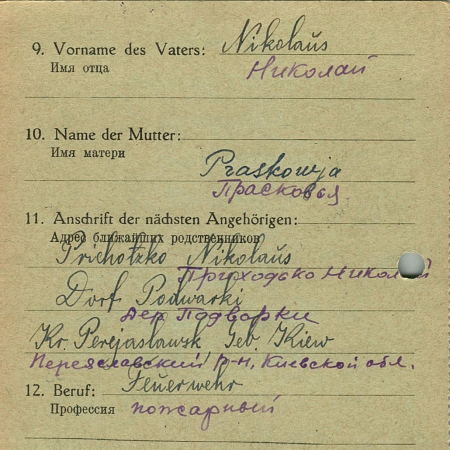 9. Vorname des Vaters: Nikolaŭs
Имя отца Николай
10. Name der Mutter:
Имя матери
Praskowja
Прасковья
11. Anschrift der nächsten Angehörigen:
Адрес ближайших родственников
Prichotzko Nikolaŭs
Приходько Николай
Dorf Podwarki
дер Подворки
Kr. Perejaslawsk Geb. Kiew
Переяславский р-н, Киевской обл.
12. Beruf: Feuerwehr
Профессия пожарный